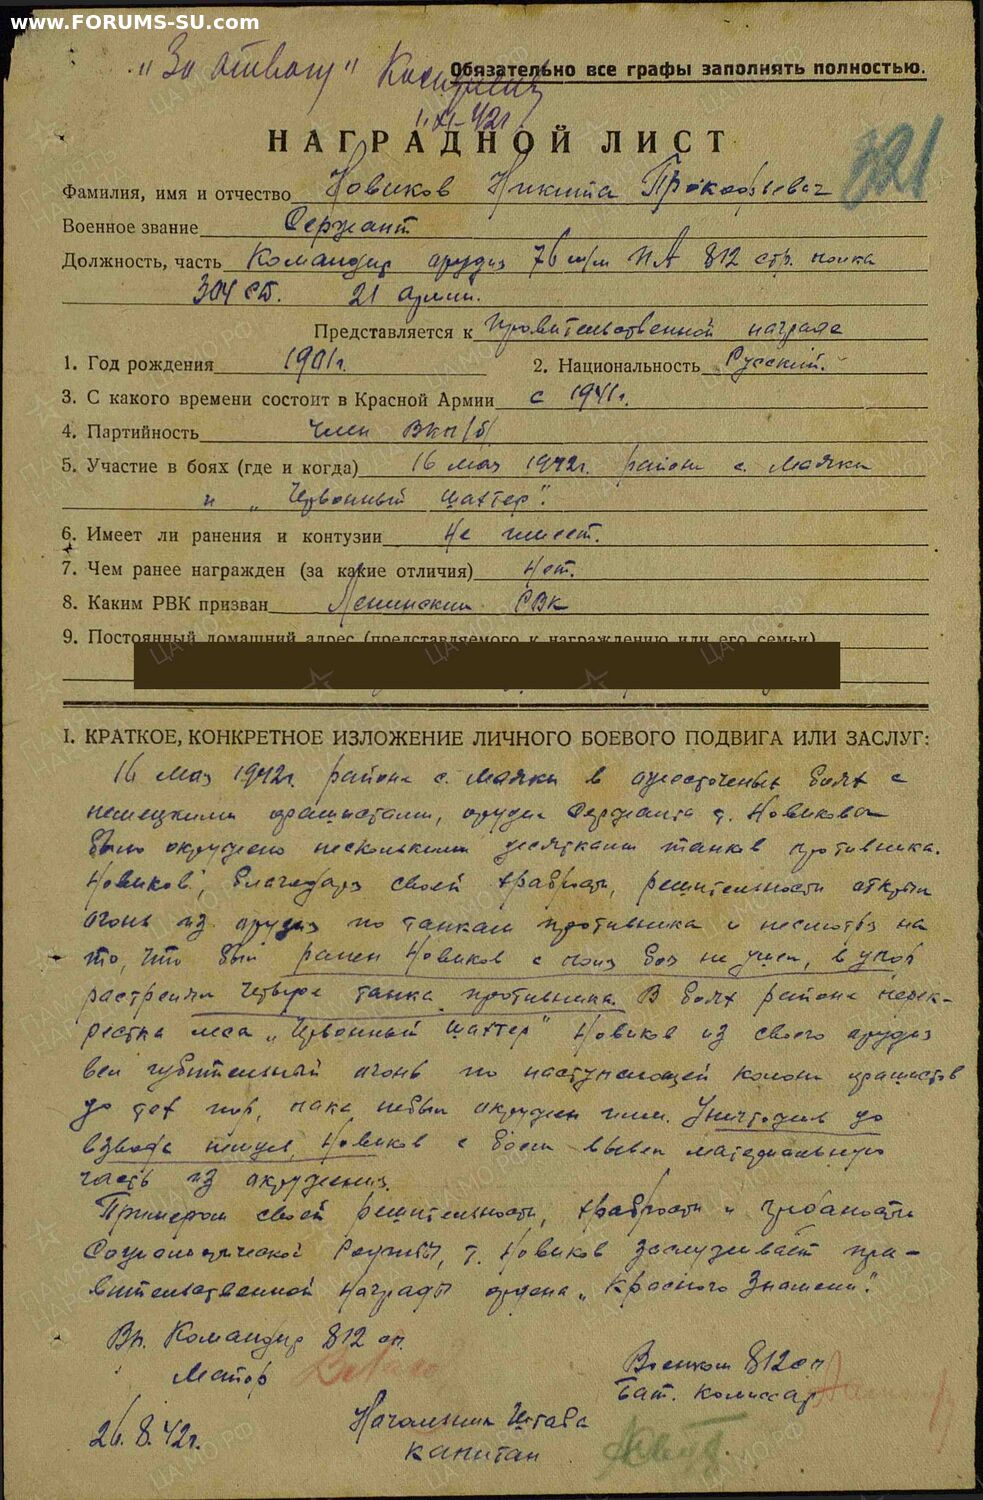 www.FORUMS-SU.com
"За отвагу"
Обязательно все графы заполнять полностью.
1.XI-42г.
НАГРАДНОЙ ЛИСТ
321
Фамилия, имя и отчество Новиков Никита Прокофьевич
Военное звание Сержант
Должность, часть Командир орудия 76 м/м ПА 812 стр. полка
304 СД. 21 армии.
Представляется к правительственной награде
1. Год рождения 1901г. 2. Национальность Русский.
3. С какого времени состоит в Красной Армии с 1941г.
4. Партийность член ВКП/б/
5. Участие в боях (где и когда) 16 мая 1942г. района с. Маяки
и "Червонный шахтер".
6. Имеет ли ранения и контузии Не имеет.
7. Чем ранее награжден (за какие отличия) Нет.
8. Каким РВК призван Ленинским РВК
9. Постоянный домашний адрес (представляемого к награждению или его семьи)
I. КРАТКОЕ, КОНКРЕТНОЕ ИЗЛОЖЕНИЕ ЛИЧНОГО БОЕВОГО ПОДВИГА ИЛИ ЗАСЛУГ:
16 мая 1942г. района с. Маяки в ожесточеных боях с
немецкими фашистами, орудие Сержанта т. Новикова
было окружено несколькими десятками танков противника.
Новиков, благодаря своей храбрости, решительности открыл
огонь из орудия по танкам противника и несмотря на
то, что был ранен Новиков с поля боя не ушел, в упор
растрелял четыре танка противника. В боях района перек-
рестка леса "Червонный шахтер" Новиков из своего орудия
вел губительный огонь по наступающей колоне фашистов
до тех пор, пока небыл окружен ими. Уничтожил до
взвода пехоты, Новиков с боем вывел материальную
часть из окружения.
Примером своей решительности, храбрости и
Социалистической Родины, т. Новиков заслуживает пра-
вительственной награды ордена "Красного Знамени".
Вр. Командир 812 сп.
Майор
Военком 812 сп
Бат. комиссар
26.8.42г.
Начальник Штаба
капитан